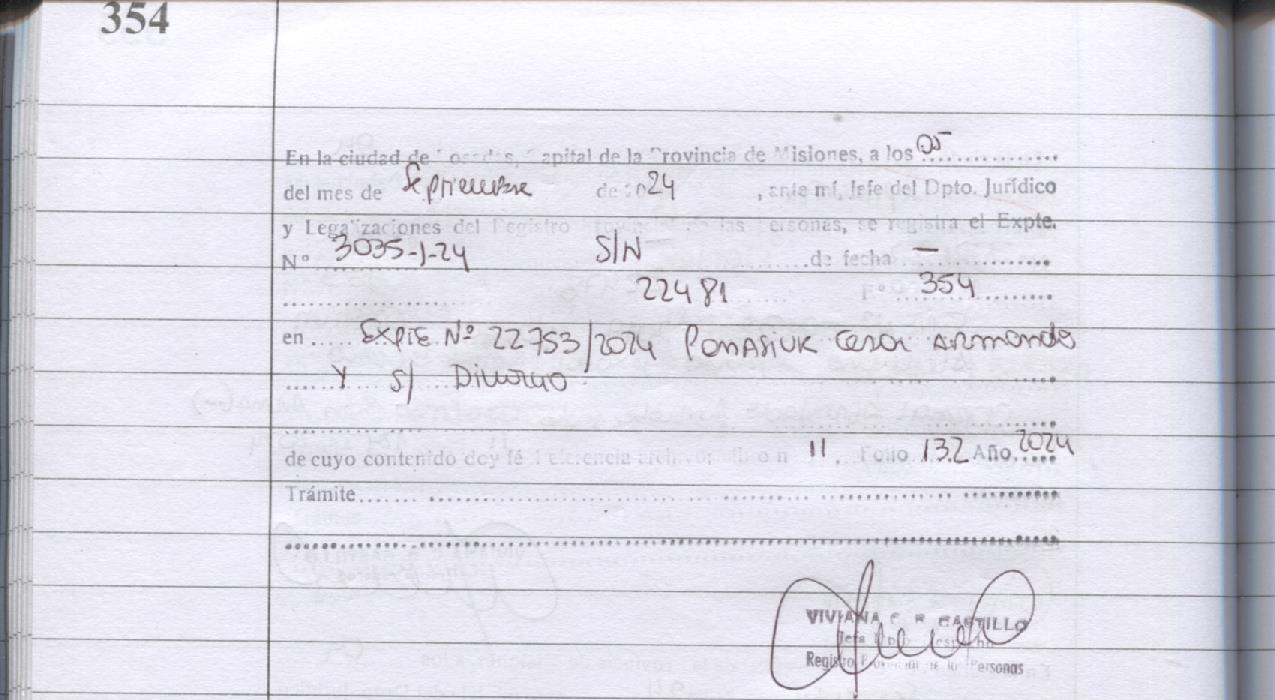 354
En la ciudad de Posadas, Capital de la Provincia de Misiones, a los 05
del mes de Septiembre de 2024, ante mí, Jefe del Dpto. Jurídico
y Legalizaciones del Registro Provincial de las Personas, se registra el Expte.
Nº 3035-J-24 S/N de fecha —
22481 Fº 354
en EXPTE. Nº 22753/2024 PONASIUK Cesar ARMANDO
Y S/ Divorcio
de cuyo contenido doy fé Referencia 11. Folio 132 Año 2024
Trámite
VIVIANA C. R. CASTILLO
Jefa Dpto. Despacho
Registro Provincial de las Personas